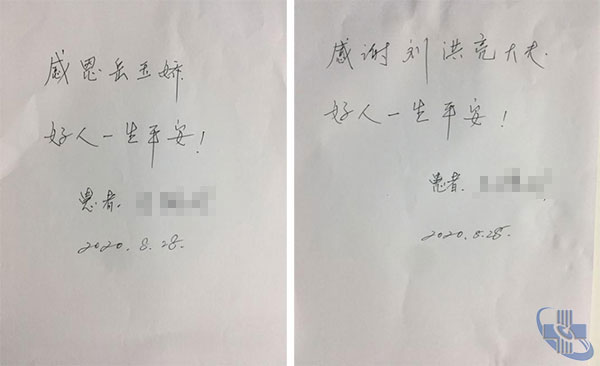 感恩岳玉娇
好人一生平安!
患者.
2020.8.28.
感谢刘洪亮大夫.
好人一生平安!
患者.
2020.8.28.